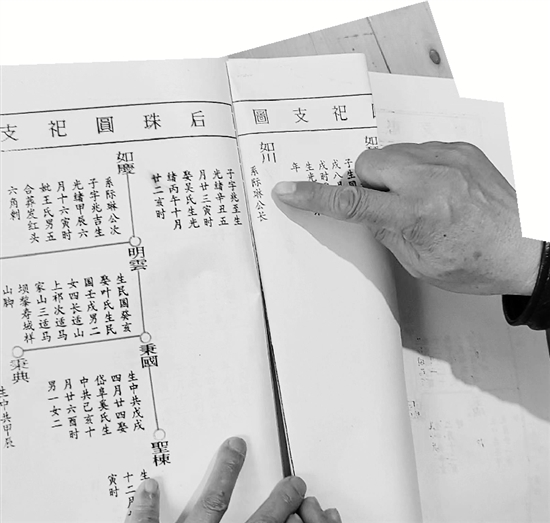 祀支圖
后珠圓祀支
如川
系际琳公长
子字兆至生
光绪辛丑五
月廿三寅时
娶吴氏生光
绪丙午十月
廿二亥时
如慶
系际琳公次
子字兆吉生
光绪甲辰六
月十六寅时
妣王氏男五
合葬发红头
六角剌
明雲
生民国癸亥
娶叶氏生民
国壬戌男二
女四长适山
上祁次适马
家山三适马
坝馨寿城样
山脚
秉國
生中共戊戌
四月廿四娶
岱阜奚氏生
中共己亥十
月廿六酉时
男一女二
秉典
生中共甲辰
聖棟
生
十二月
寅时